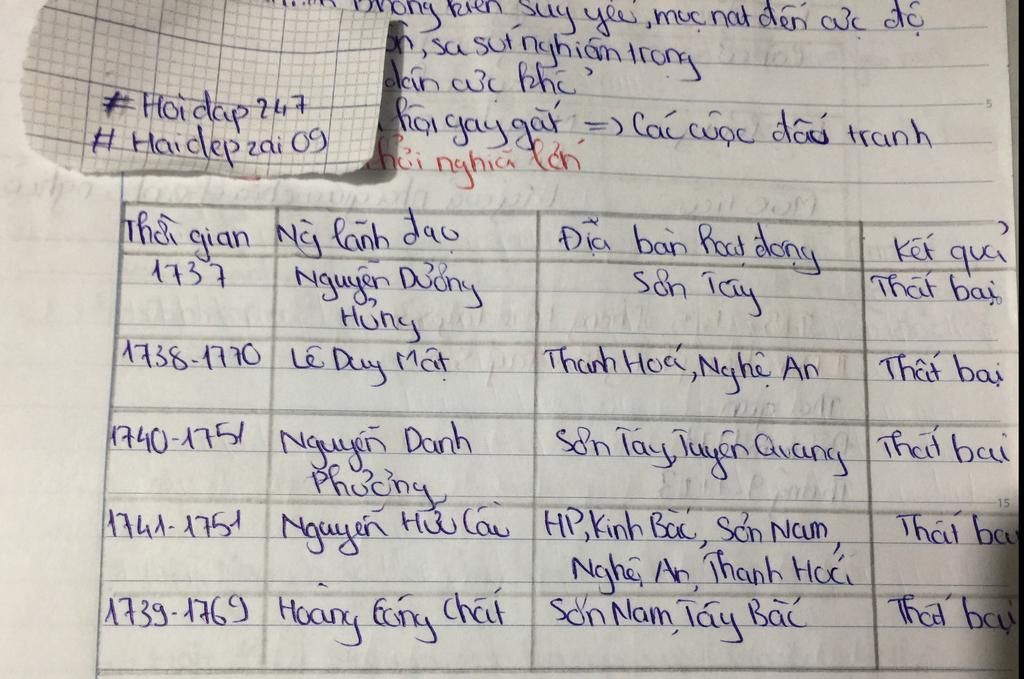 phong kiến suy yếu, mục nát đến cực độ
sa sút nghiêm trọng
dân cực khổ
#Hoidap247
#Haidepzai09
hội gay gắt => Các cuộc đấu tranh
khởi nghĩa lớn
Thời gian Ng lãnh đạo Địa bàn hoạt động Kết quả
1737 Nguyễn Dương Sơn Tây Thất bại
Hưng
1738-1770 Lê Duy Mật Thanh Hoá, Nghệ An Thất bại
1740-1751 Nguyễn Danh Sơn Tây, Tuyên Quang Thất bại
Phương
1741-1751 Nguyễn Hữu Cầu HP, Kinh Bắc, Sơn Nam, Thất bại
Nghệ An, Thanh Hoá
1739-1769 Hoàng Công Chất Sơn Nam, Tây Bắc Thất bại
5
15